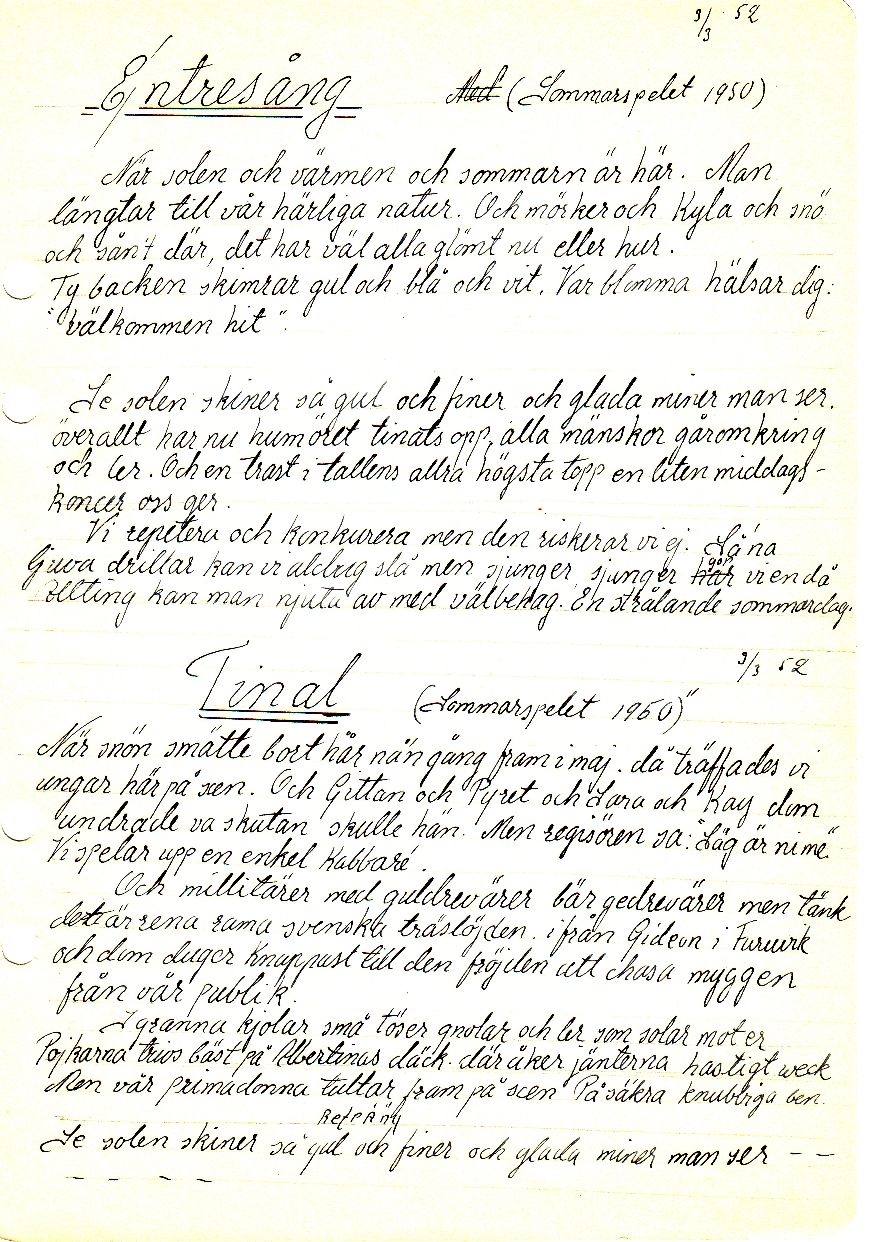 3/3 52
Éntresång Med (Sommarspelet 1950)
När solen och värmen och sommarn är här. Man
längtar till vår härliga natur. Och mörker och Kyla och snö
och sån't där, det har väl alla glömt nu eller hur.
Ty backen skimrar gul och blå och vit. Var blomma hälsar dig:
"välkommen hit".
Se solen skiner så gul och finer och glada miner man ser.
överallt har nu humöret tinats opp, alla mänskor går omkring
och ler. Och en trast i tallens allra högsta topp en liten middags-
koncer oss ger.
Vi repetera och konkurera men den riskerar vi ej. Så'na
ljuva drillar kan vi aldrig slå men sjunger, sjunger här gör vi endå
Allting kan man njuta av med välbehag. En strålande sommardag.
3/3 52
Final (Sommarspelet 1950)"
När snön smätte bort här nå'n gång fram i maj. då träffades vi
ungar här på scen. Och Gittan och Pyret och Lara och Kay dom
undrade va skutan skulle hän. Men regisören sa: "Säg är ni me"
Vi spelar upp en enkel Kabbaré.
Och millitärer med guldrevärer bär gedrevärer men tänk
det är rena rama svenska träslöjden. ifrån Gideon i Furuvik
och dom duger knappast till den fröjden att chasa myggen
från vår publik.
I granna kjolar små töser gnolar och ler som solar mot er
Pojkarna trivs bäst på Albertinas däck. där åker jänterna hastigt weck
Men vår primadonna tultar fram på scen På säkra knubbiga ben.
Refräng
Se solen skiner så gul och finer och glada miner man ser - -
- - - - -